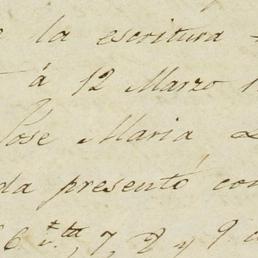 la escritura
á 12 Marzo
Jose Maria
da presentó con
6 7, 8 y 9